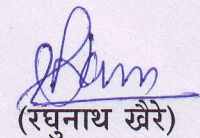 (रघुनाथ खैरे)